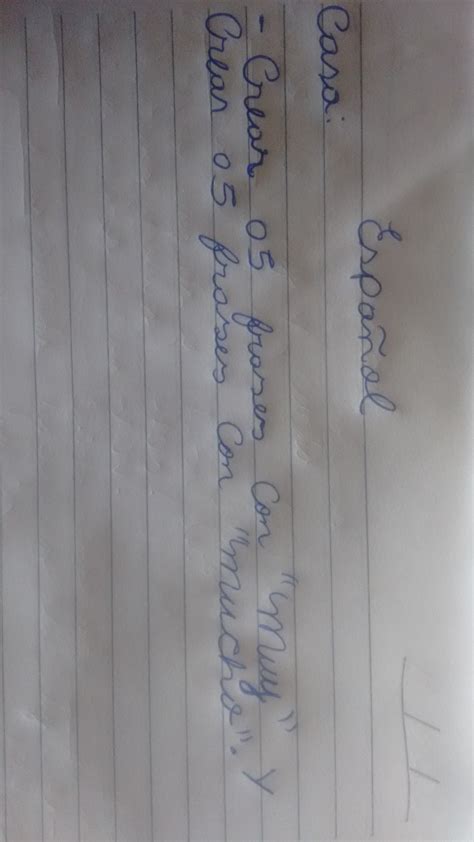 Español
Casa:
- Crear 05 frases con "Muy" Y
Crear 05 frases con "mucho".